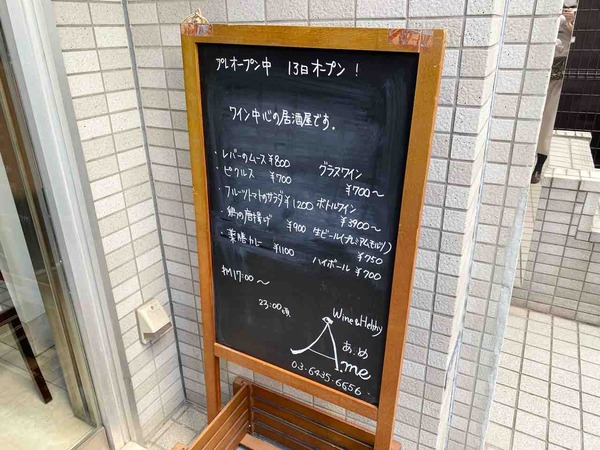 プレオープン中 13日オープン!
ワイン中心の居酒屋です。
・レバーのムース ¥800
・ピクルス ¥700
・フルーツトマトのサラダ ¥1200
・鶏の唐揚げ ¥900
・薬膳カレー ¥1100
グラスワイン
¥700〜
ボトルワイン
¥3900〜
生ビール(プレミアムモルツ)
¥750
ハイボール ¥700
17:00〜
23:00頃
Wine&Herby
あ.め
A.me
03.6435.6656